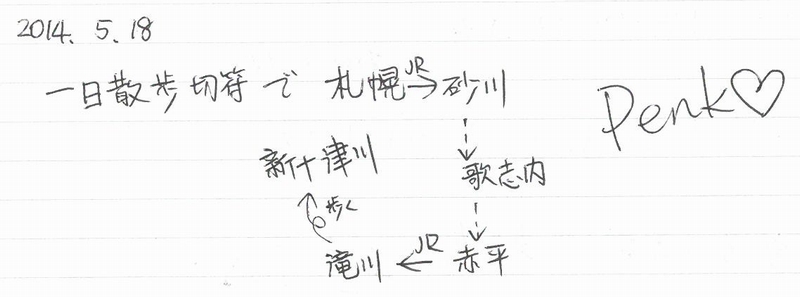 2014. 5. 18
一日散歩切符で 札幌 JR→ 砂川
Penk♡
新十津川
歌志内
歩く
滝川 ←JR 赤平